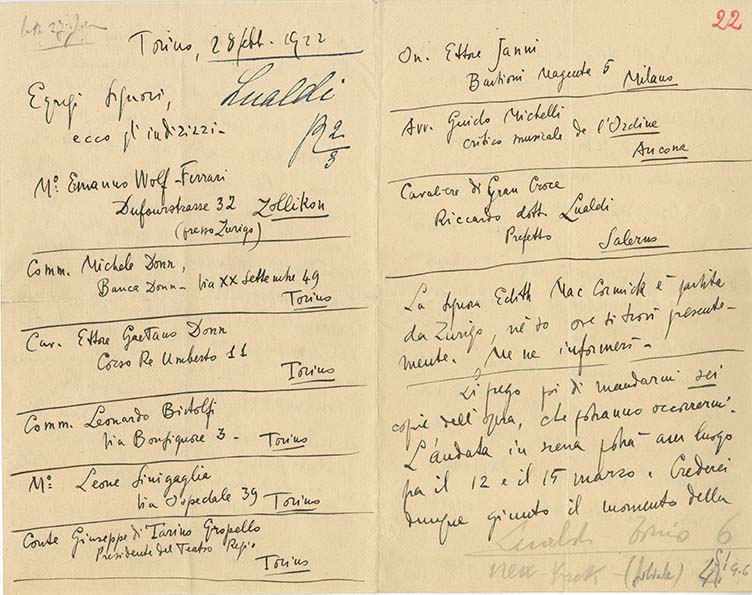 Torino, 28 febb. 1922
Lualdi
Egregi Signori,
ecco gli indirizzi -
R 2/3
M.º Emanno Wolf-Ferrari
Dufourstrasse 32 Zollikon
(presso Zurigo)
Comm. Michele Donn,
Banca Donn - Via XX Settembre 49
Torino
Cav. Ettore Gaetano Donn
Corso Re Umberto 11
Torino
Comm. Leonardo Bistolfi
Via Bonsignore 3 - Torino
M.º Leone Sinigaglia
Via Ospedale 39 Torino
Conte Giuseppe di Tarino Gropello
Presidente del Teatro Regio
Torino
22
On. Ettore Janni
Bastioni Magenta 5 Milano
Avv. Guido Michelli
critico musicale de l'Ordine
Ancona
Cavaliere di Gran Croce
Riccardo dott. Lualdi
Prefetto Salerno
La Signora Edith Mac Cormick è partita
da Zurigo, nè so ove si trovi presente-
mente. Me ne informerò -
Li prego poi di mandarmi sei
copie dell'opera, che potranno occorrermi.
L'andata in scena potrà aver luogo
fra il 12 e il 15 marzo. Crederei
dunque giunto il momento della
Lualdi 6
New York - (filiale)